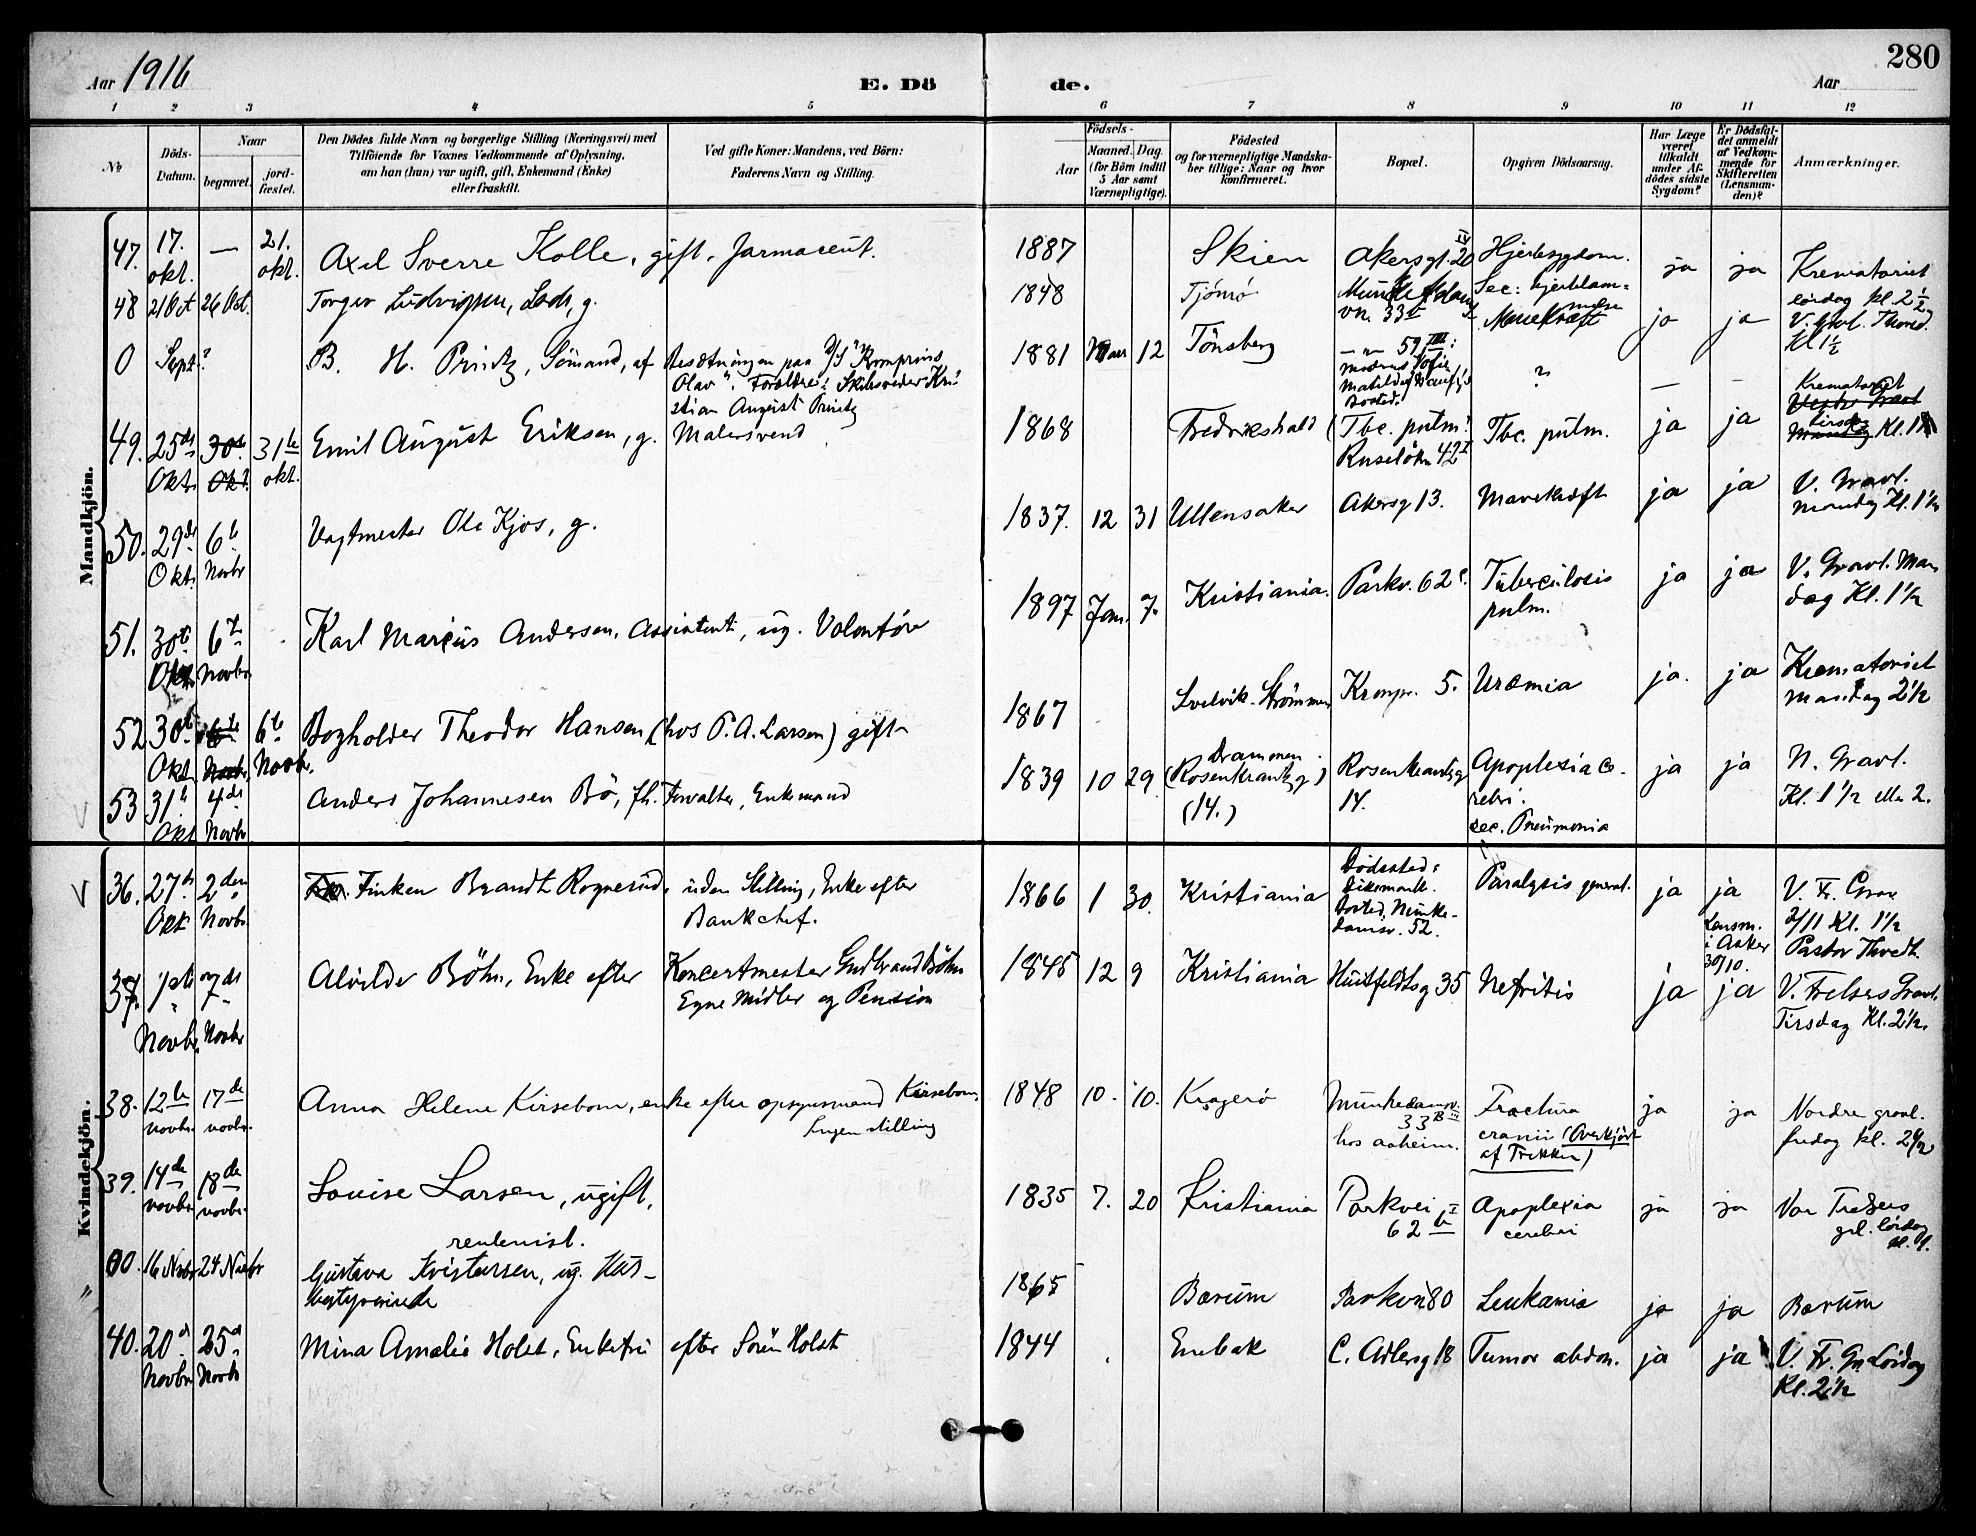 280
Aar 1916
E. Dö
de.
Aar
1 2 3 4 5 6 7 8 9 10 11 12
No
Döds-
Datum.
Naar
begravet.
jord-
fæstet.
Den Dödes fulde Navn og borgerlige Stilling (Næringsvei) med
Tilföiende for Voxnes Vedkommende af Oplysning,
om han (hun) var ugift, gift, Enkemand (Enke)
eller fraskilt.
Ved gifte Koner: Mandens, ved Börn:
Faderens Navn og Stilling.
Födsels-
Aar
Maaned. Dag.
(for Börn indtil
5 Aar samt
Værnepligtige).
Födested
og for værnepligtige Mandska-
ber tillige: Naar og hvor
konfirmeret.
Bopæl.
Opgiven Dödsaarsag.
Har Læge
været
tilkaldt
under Af-
dödes sidste
Sygdom?
Er Dödsfal-
det anmeldt
af Vedkom-
mende for
Skifteretten
(Lensman-
den)?
Anmærkninger.
Mandkjön.
47. 17. okt. — 21. okt. Axel Sverre Kolle, gift, farmaceut. 1887 Skien Akersgt. 20 IV Hjertesygdom. ja ja Krematoriet
lördag kl. 2 1/2
48 21 Okt 26 Okt. Torger Ludvigsen, Lods, g. 1848 Tjömö
vn. 33 II
Sec: hjertelam-
melse
Mavekræft ja ja V. Gravl.
Kl 1 1/2
0 Sept. ? B. H. Printz, Sömand, af Besætningen paa D/S "Kronprins
Olav". Forældre: Skibsreder Kri-
stian August Printz
1881 Mars 12 Tönsberg — " — 59 III:
moderens
bosted.
? — —
49. 25de Okt. 30te Okt. 31te okt. Emil August Eriksen, g. Malersvend 1868 Fredrikshald (Tbc. pulm.
Ruselökv. 42 I
Tbc. pulm. ja ja Krematoriet
Vestre Gravl
Tirsdag
Mandag Kl. 1
50. 29de Okt. 6te Novbr Vagtmester Ole Kjos, g. 1837. 12 31 Ullensaker Akersg 13. Mavekræft ja ja V. Gravl.
mandag Kl. 1 1/2
51. 30te Okt. 6te Novbr Karl Marcus Andersen, Assistent, ug. Volontör 1897 Jan. 7. Kristiania. Parkv. 62 Tuberculosis
pulm.
ja ja V. Gravl. Man
dag Kl. 1 1/2
52 30te Okt. 6te Novbr. 6te Novbr. Bogholder Theodor Hansen (hos P. A. Larsen) gift 1867 Svelvik - Strömmen Kronpr. 5. Uræmia ja. ja Krematoriet
mandag 2 1/2
53 31te Okt 4de Novbr. Anders Johannesen Bö, fh. Forvalter, Enkemand 1839 10 29. Drammen
(Rosenkrantzg)
(14.)
Rosenkrantzg
14.
Apoplexia ce-
rebri.
sec. Pneumonia
ja ja N. Gravl.
Kl. 1 1/2 eller 2.
Kvindekjön.
36. 27de Okt 2den Novbr. Finken Brandt Rognerud, uden Stilling, Enke efter
Bankchef.
1866 1 30. Kristiania Dödssted:
Dikemark.
Bosted. Munke-
damsv. 52.
Paralysis general. ja ja
Lensm.
i Asker
30/10.
V. Fr. Grav
2/11 Kl. 1 1/2
Pastor
37. 1ste Novbr. 7de Novbr Alvilde Böhn, Enke efter Koncertmester Gudbrand Böhn
Egne Midler og Pension
1845 12 9 Kristiania Huitfeldtsg 35 Nefritis ja ja V. Frelsers Gravl.
Tirsdag Kl. 2 1/2.
38. 12te novbr. 17de novbr. Anna Helene Kirsebom, enke efter opsynsmand Kirsebom.
Ingen stilling
1848 10. 10. Kragerö Munkedamsv.
33 B III
hos Aaheim.
Fractura
cranii (Overkjört
af Trikken)
ja ja Nordre gravl.
fredag kl. 2 1/2
39. 14de novbr. 18de novbr. Louise Larsen, ugift,
rentenist.
1835 7. 20 Kristiania Parkvei
62 b I
Apoplexia
cerebri
ja ja Vor Frelsers
grl. lördag
kl. 1.
" 00. 16 Novbr 24 Novbr Gustava Kristensen, ug. Hus-
bestyrerinde
1865 Bærum Parkvei 80 Leukæmia ja ja Bærum
40. 20de Novbr 25de Novbr Mina Amalie Holst, Enkefru efter Sören Holst 1844 Enebak C. Adlersg 18 Tumor abdom. ja ja V. Fr. Gr. Lördag
Kl. 2 1/2